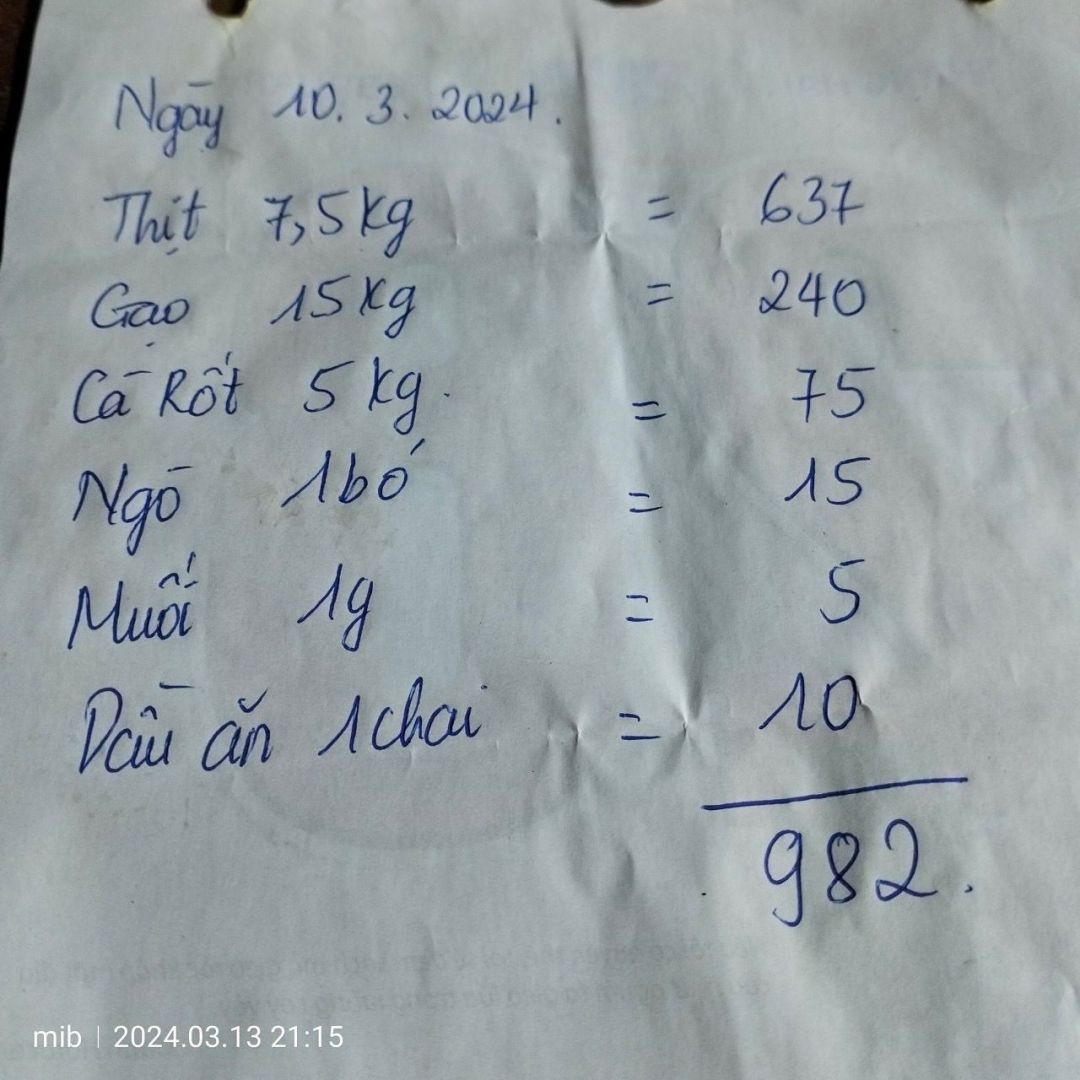 Ngày 10.3.2024.
Thịt 7,5kg = 637
Gạo 15kg = 240
Cà Rốt 5kg. = 75
Ngò 1bó = 15
Muối 1g = 5
Dầu ăn 1chai = 10
982.
mib | 2024.03.13 21:15